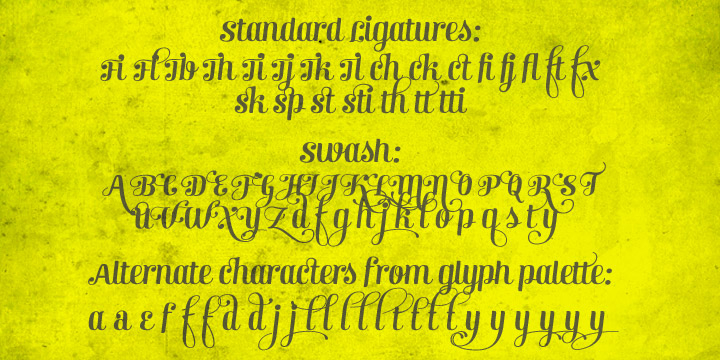 Standard Ligatures:
Fi Fl Th Th Ti Tj Tk Tl ch ck ct fi fj fl ft fx
sk sp st sti th tt tti
Swash:
A B C D E F G H I J K L M N O P Q R S T
U V W X Y Z d f g h j k l o p q s t y
Alternate characters from glyph palette:
a a e f f f d d j j l l l l l l l l y y y y y y